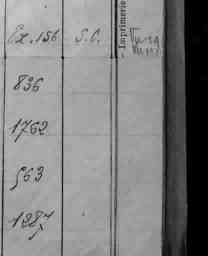 Ex. 156 S. C.
Imprimerie
836
1762
563
1287